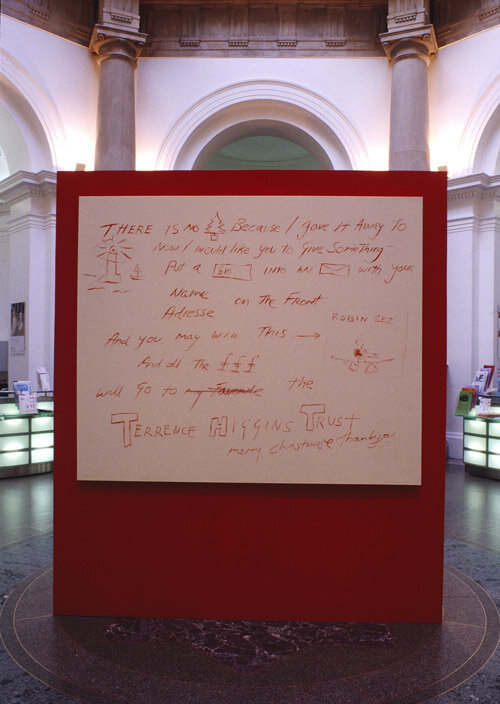 THERE IS NO Because I gave it Away to
Now I would like you to give Something
Put a £10 into AN with your
Name on the Front
Adresse
And you may win This
ROBIN SEZ
And all the £ £ £
will go to my Favourite the
TERRENCE HIGGINS TRUST
merry christmas